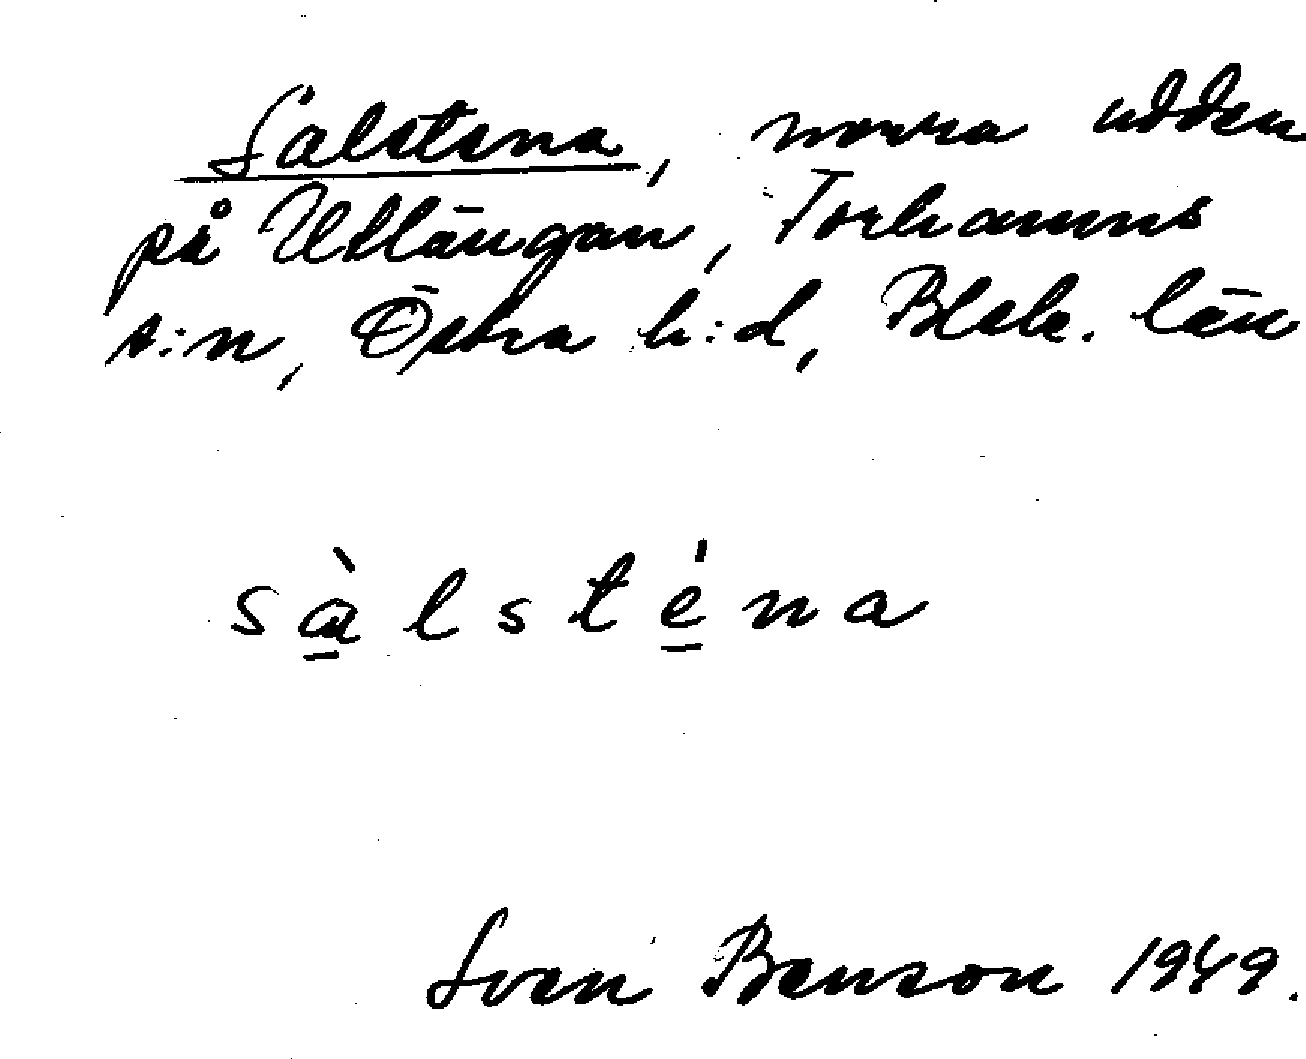 Salstena, norra udden
på Utlängan, Torhamns
s:n, Östra h:d, Blek. län
sɑ̠̀lsté̠na
Sven Benson 1949.